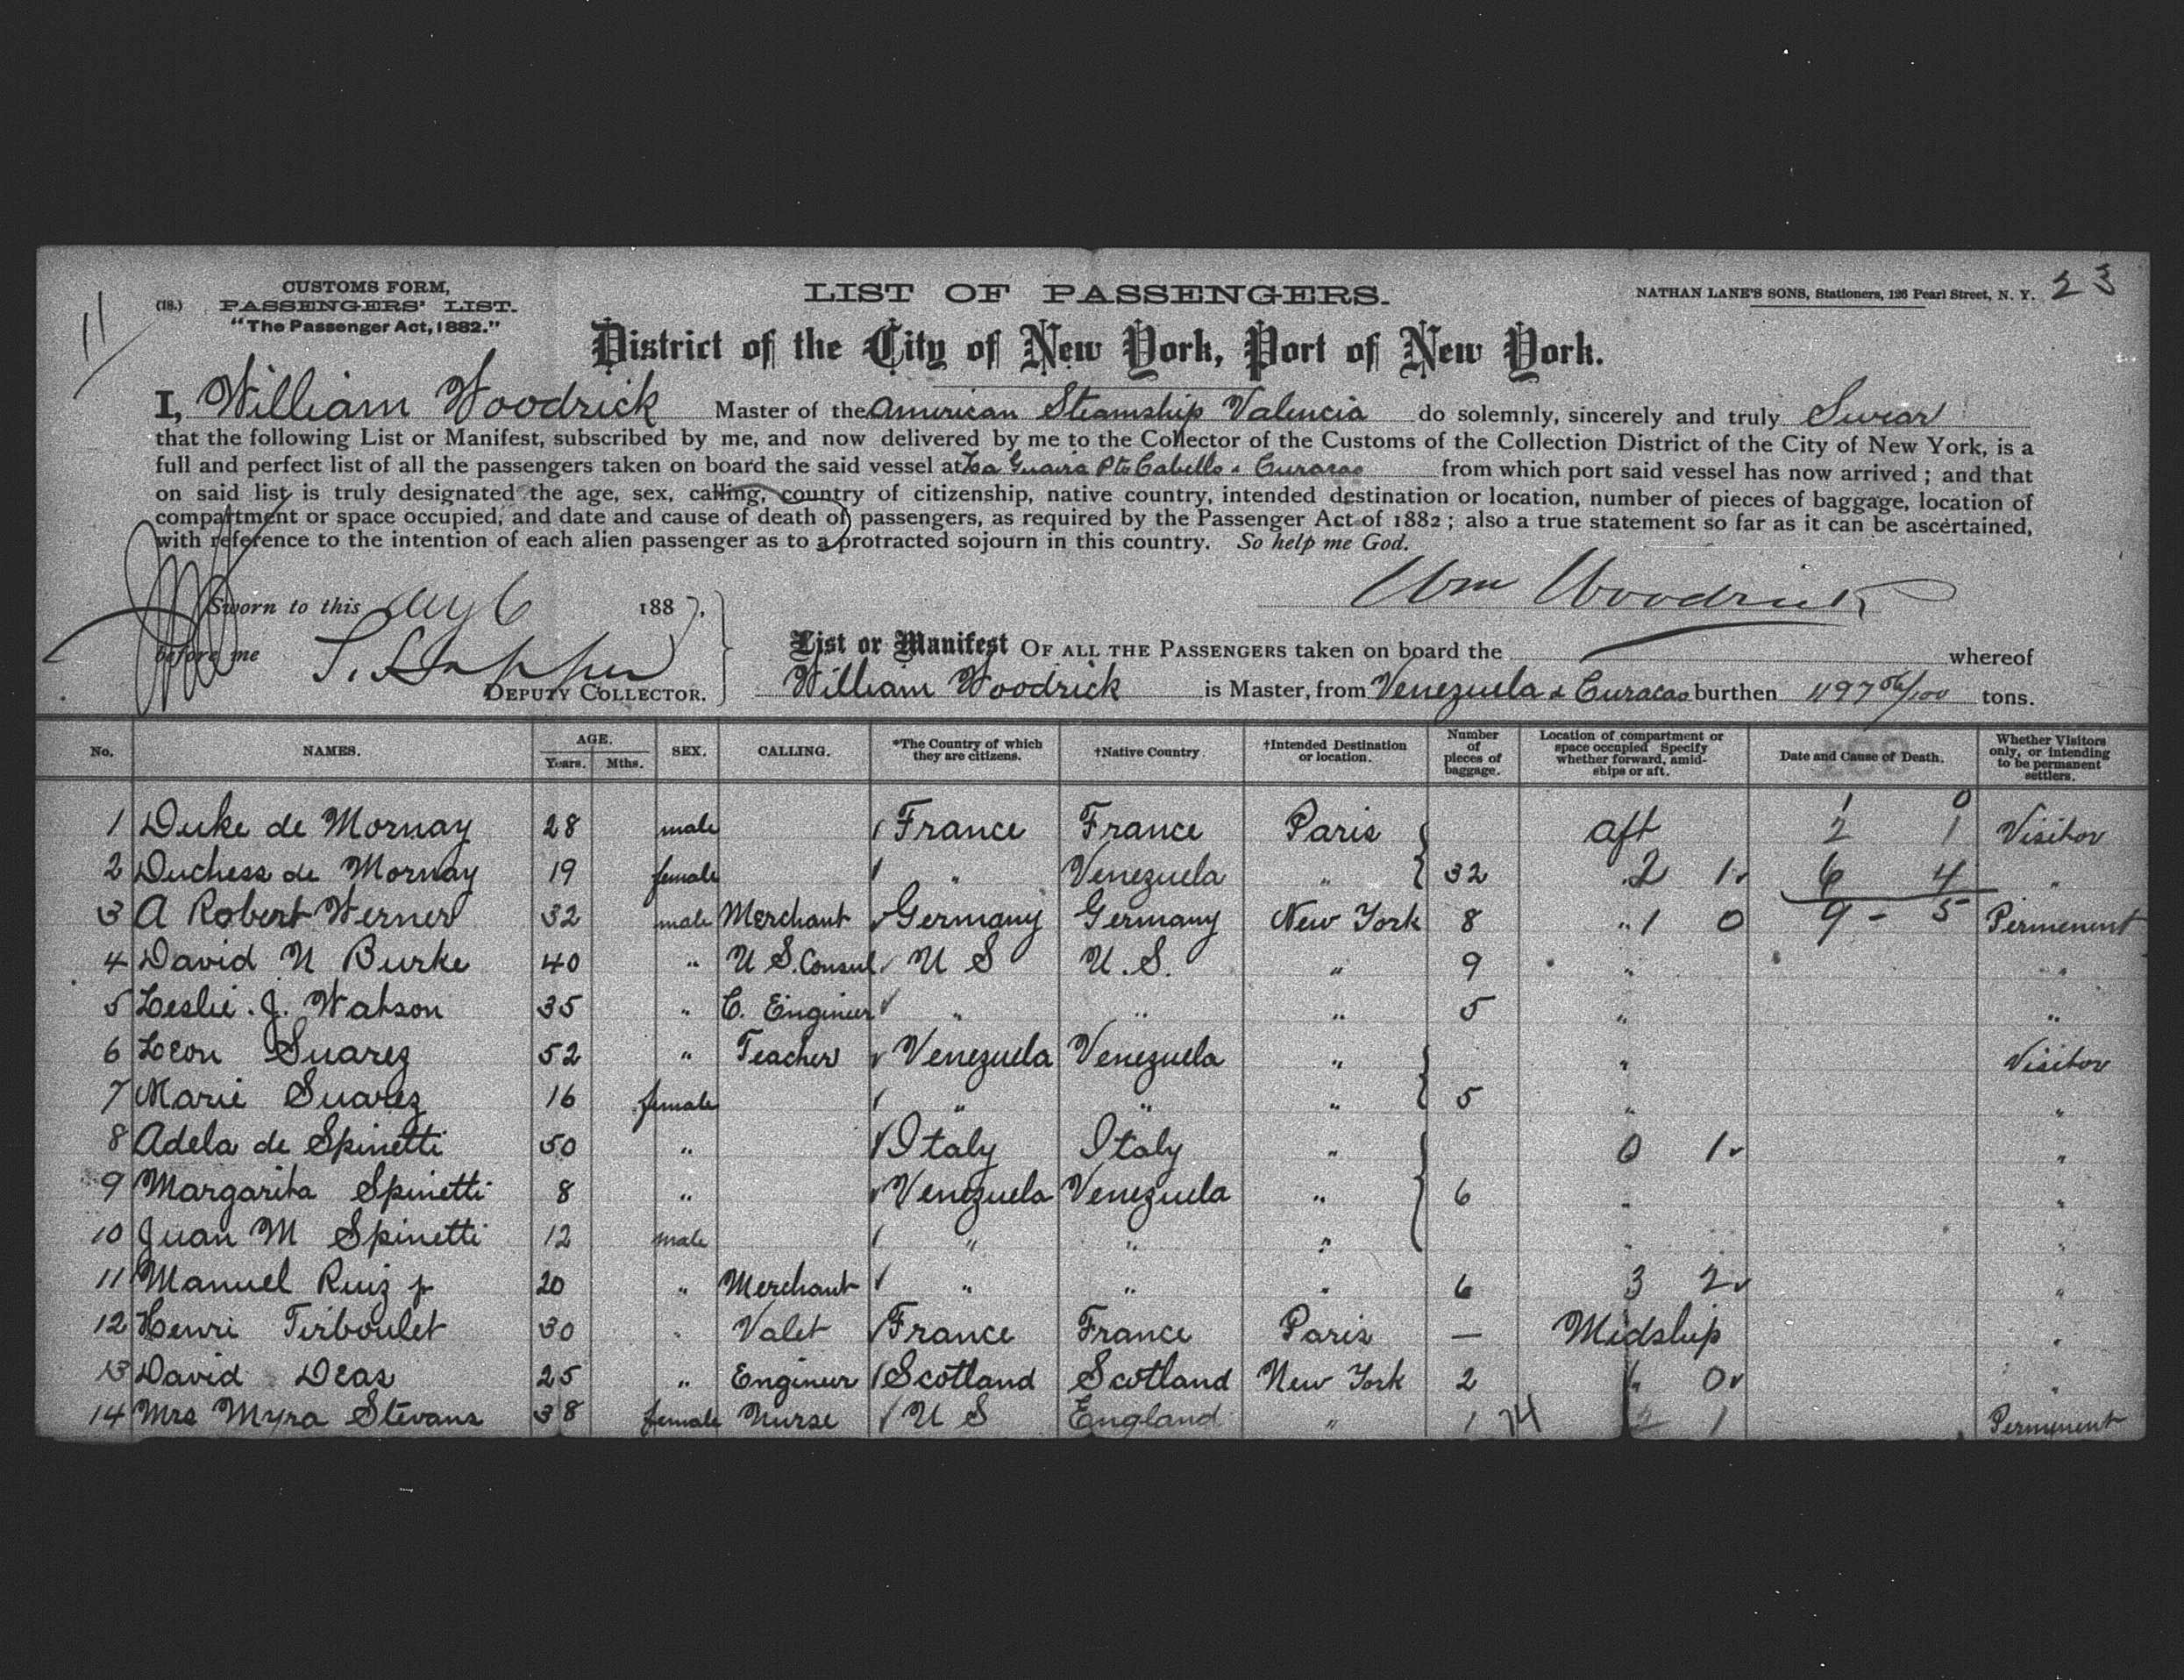 11
(18.) CUSTOMS FORM,
PASSENGERS' LIST.
"The Passenger Act, 1882."
LIST OF PASSENGERS.
NATHAN LANE'S SONS, Stationers, 126 Pearl Street, N. Y. 23
District of the City of New York, Port of New York.
I, William Woodrick Master of the American Steamship Valencia do solemnly, sincerely and truly Swear
that the following List or Manifest, subscribed by me, and now delivered by me to the Collector of the Customs of the Collection District of the City of New York, is a
full and perfect list of all the passengers taken on board the said vessel at La Guaira Pto Cabello & Curacao from which port said vessel has now arrived; and that
on said list is truly designated the age, sex, calling, country of citizenship, native country, intended destination or location, number of pieces of baggage, location of
compartment or space occupied, and date and cause of death of passengers, as required by the Passenger Act of 1882; also a true statement so far as it can be ascertained,
with reference to the intention of each alien passenger as to a protracted sojourn in this country. So help me God.
Wm Woodrick
Sworn to this 6 1887.
before me
DEPUTY COLLECTOR.
List or Manifest OF ALL THE PASSENGERS taken on board the whereof
William Woodrick is Master, from Venezuela & Curacao burthen 1197 56/100 tons.
No. NAMES. AGE. Years. Mths. SEX. CALLING. *The Country of which they are citizens. †Native Country. †Intended Destination or location. Number of pieces of baggage. Location of compartment or space occupied Specify whether forward, amidships or aft. Date and Cause of Death. Whether Visitors only, or intending to be permanent settlers.
1 0
1 Duke de Mornay 28 male France France Paris aft 2 1 Visitor
2 Duchess de Mornay 19 female " Venezuela " 32 " 2 1 6 4 "
3 A Robert Werner 32 male Merchant Germany Germany New York 8 " 1 0 9 - 5 Permenent
4 David N Burke 40 " U S. Consul U S U. S. " 9 " "
5 Leslie. J. Watson 35 " C. Enginier " " " 5 " "
6 Leon Suarez 52 " Teacher Venezuela Venezuela " " Visitor
7 Marie Suarez 16 female " " " 5 " "
8 Adela de Spinetti 50 " Italy Italy " 0 1 "
9 Margarita Spinetti 8 " Venezuela Venezuela " 6 " "
10 Juan M Spinetti 12 male " " " " "
11 Manuel Ruiz jr 20 " Merchant " " " 6 3 2 "
12 Henri Tirboulet 30 " Valet France France Paris — Midship "
13 David Deas 25 " Enginier Scotland Scotland New York 2 " 0 "
14 Mrs Myra Stevans 38 female Nurse U S England " 1 74 2 1 Permenent